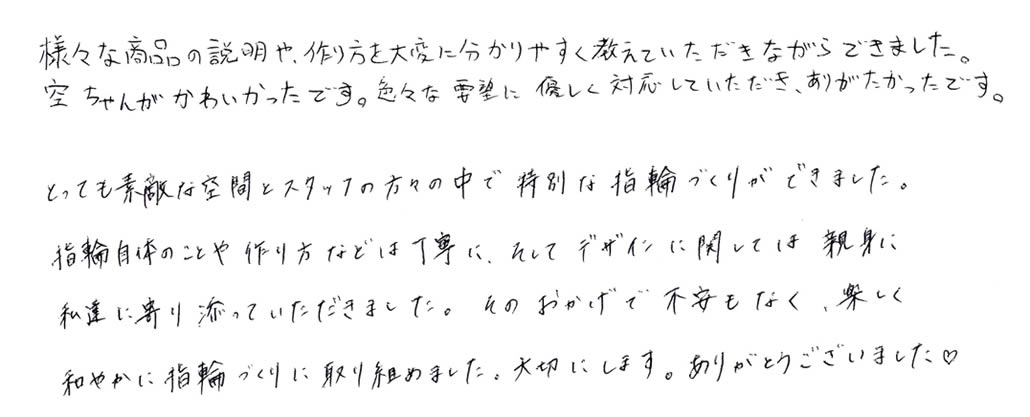 様々な商品の説明や、作り方を大変に分かりやすく教えていただきながらできました。
空ちゃんがかわいかったです。色々な要望に優しく対応していただき、ありがたかったです。
とっても素敵な空間とスタッフの方々の中で特別な指輪づくりができました。
指輪自体のことや作り方などは丁寧に、そしてデザインに関しては親身に
私達に寄り添っていただきました。そのおかげで不安もなく、楽しく
和やかに指輪づくりに取り組めました。大切にします。ありがとうございました♡